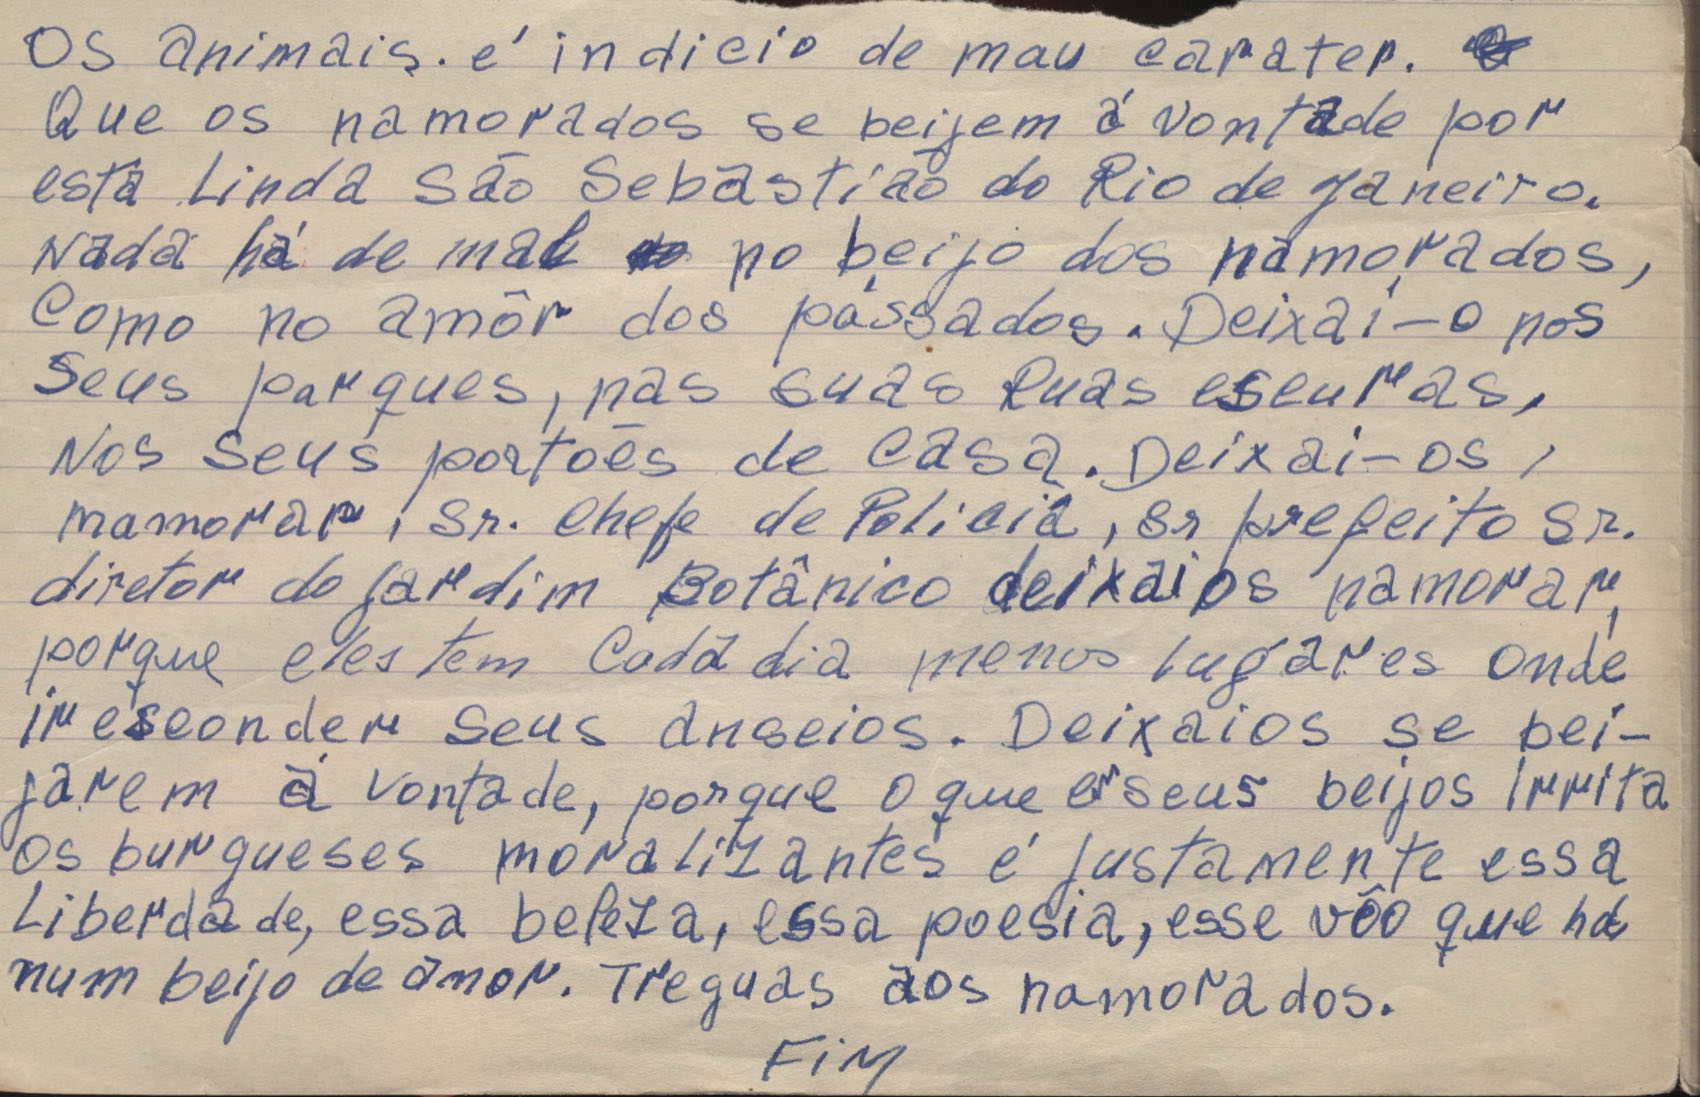 Os animais. é indicio de mau carater.
Que os namorados se beijem á vontade por
esta Linda São Sebastião do Rio de Janeiro.
Nada há de mal no beijo dos namorados,
Como no amôr dos pássados. Deixai-o nos
Seus parques, nas suas Ruas escuras,
Nos Seus portoēs de Casa. Deixai-os,
mamorar, Sr. Chefe de Policia, sr prefeito Sr.
diretor do jardim Botânico deixaios namorar,
porque eles tem Cada dia menos lugares onde
ir esconder Seus anseios. Deixaios se bei-
jarem á vontade, porque o que seus beijos irrita
os burgueses moralizantes é justamente essa
Liberdade, essa beleza, essa poesia, esse vôo que há
num beijo de amor. Treguas aos namorados.
FiM